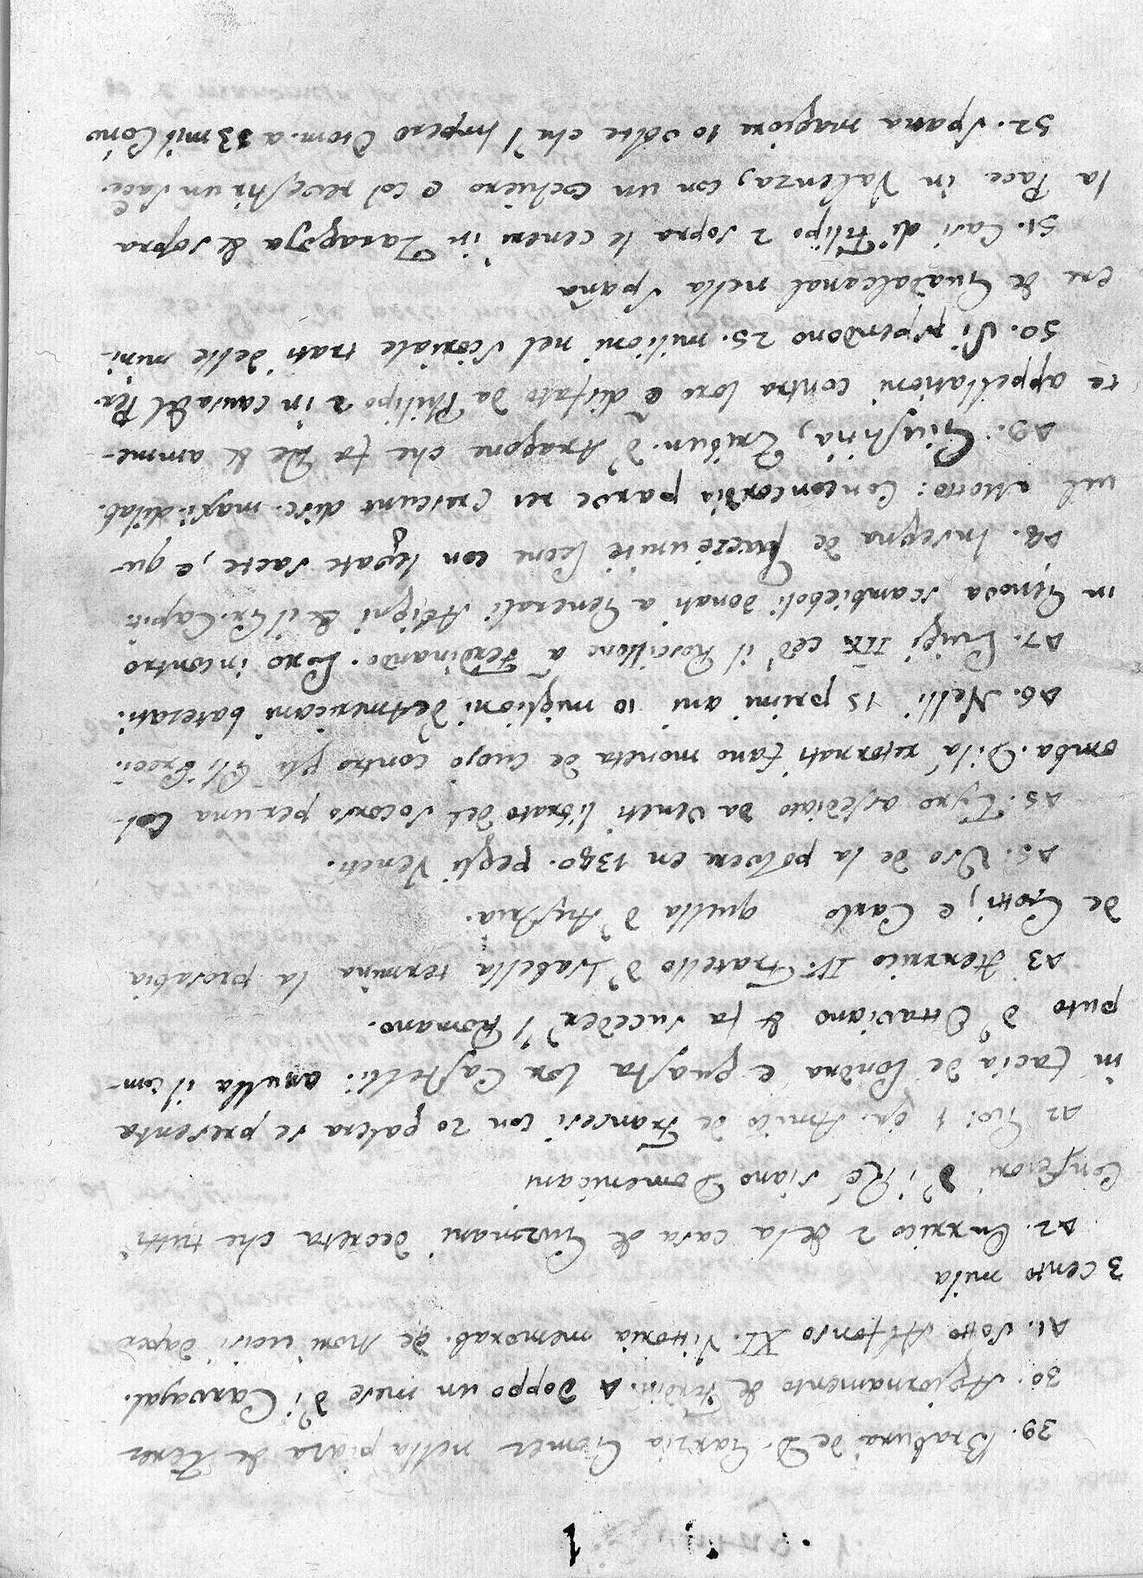 39. Bravura de D. Garzia Gomez nella piaza de Xerez
30. Agiornamento de Ferdin. 4 doppo un mese d'i Carvagal.
41. Sotto Alfonso XI. Vittoria memorab. de Mori ucisi dapro
3 cento mila
42. Enrrico 2 de la casa de Guzmani decreta che tutti
Confesori d'i Ré siano Domenicani
42 Gio: 1 Amico de Francesi con 20 galera se presenta
in facia de Londra e guasta lor Castelli: anulla il com-
puto d'Ottaviano & fa succeder 'l Romano.
43 Henrrico IV. Fratello d'Isabella termina la prosabia
de Gotti, e Carlo quella d'Austria.
45. Uso de la polvera en 1380. pegli Veneti.
45. Tyro assediato da Veneti librato del socorso per una Col-
omba. Di la ritornati fano moneta de cuojo contro gli Greci.
46. Nelli 15 primi ani 10 miglioni de Americani batezati.
47. Luigi IIX ced' il Roscillone a Ferdinando. Loro incontro
in Genova scambieboli donati a Generali Obigni & il Gr. Capit.
48. Insegna de Freccie unite leone con legate saete, e qu
nel Motto: Concordia parve res crescunt disc. maxi. dilab.
49. Giustitia, Tribun. d'Aragone che fa Re & amme-
te appellationi contra loro e disfato da Philipo 2 in causa del Per.
50. Si spendono 25. milioni nel Scoriale trati delle mini-
ere de Guadalcanal nella Spaña
51. Casi di Filipo 2 sopra le ceneri in Zaragoza & sopra
la Pace in Valenza, con un cochiero e col un Sace.
52. Spana magiore 10 volte che 'l Impero Otom. a 33 mil
1